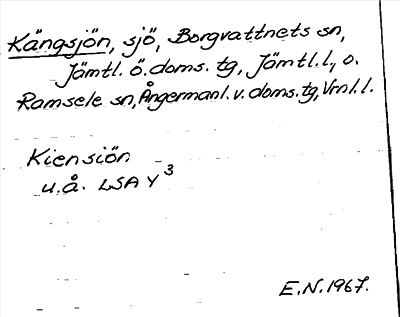 Kängsjön, sjö, Borgvattnets sn,
Jämtl. ö. doms. tg, Jämtl. l, o.
Ramsele sn, Ångermanl. v. doms. tg, Vrnl. l.
Kiensiön
u.å. LSA Y 3
E.N. 1967.